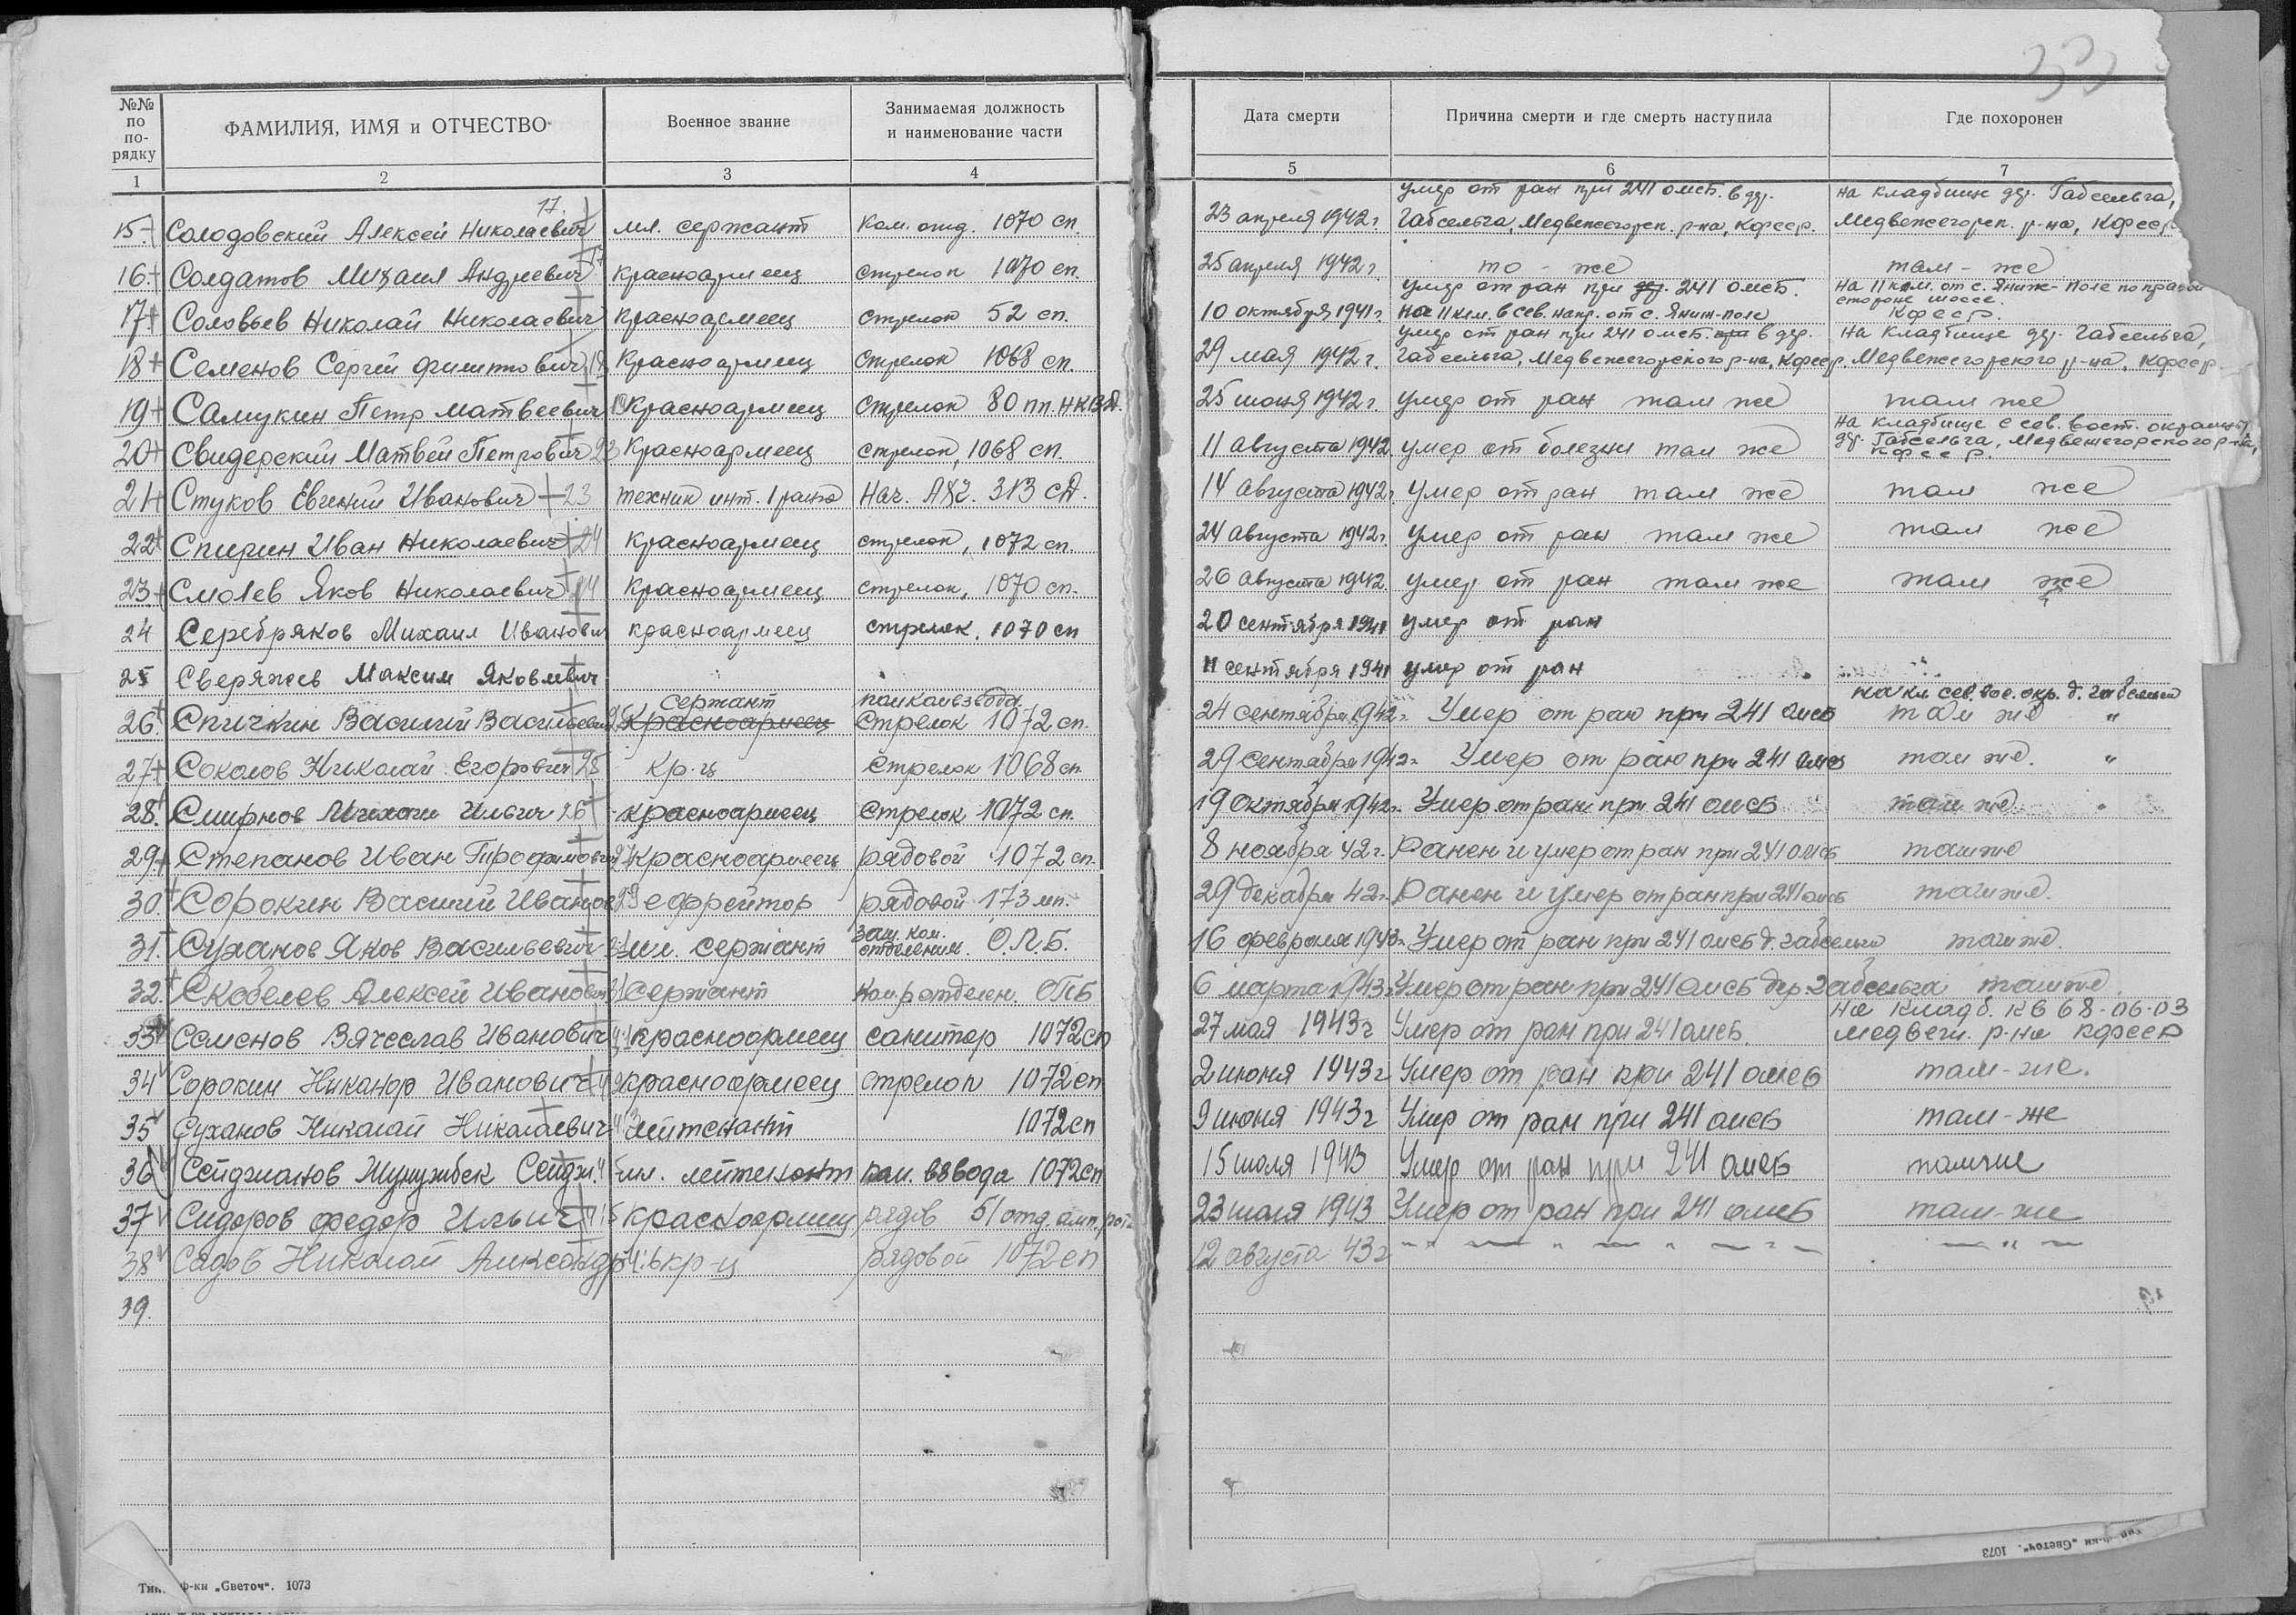 33
№№ по по-рядку
ФАМИЛИЯ, ИМЯ и ОТЧЕСТВО
Военное звание
Занимаемая должность и наименование части
Дата смерти
Причина смерти и где смерть наступила
Где похоронен
1 2 3 4 5 6 7
17
умер от ран при 241 омсб. в дер. на кладбище дер. Габсельга,
15. Солодовский Алексей Николаевич мл. сержант Ком. отд. 1070 сп. 23 апреля 1942 г. Габсельга, Медвежегорск. р-на, Кфсср. Медвежегорск. р-на, Кфсср
16. Солдатов Михаил Андреевич 17 красноармеец стрелок 1070 сп. 25 апреля 1942 г. то - же там - же
умер от ран при дер. 241 омсб. на 11 клм. от с. Яниж-Поле по правой
стороне шоссе.
17 Соловьев Николай Николаевич красноармеец стрелок 52 сп. 10 октября 1941 г. на 11 клм. в сев. напр. от с. Яниж-поле Кфсср.
умер от ран при 241 омсб. при в дер. на кладбище дер. Габсельга,
18 Семенов Сергей Филиппович 18 красноармеец стрелок 1068 сп. 29 мая 1942 г. Габсельга, Медвежегорского р-на, Кфсср. Медвежегорского р-на, Кфсср.
19 Самукин Петр Матвеевич 19 красноармеец стрелок 80 пп. НКВД. 25 июня 1942 г. умер от ран там же там же
на кладбище с сев. вост. окраины
20 Свидерский Матвей Петрович 23 красноармеец стрелок, 1068 сп. 11 августа 1942 умер от болезни там же дер. Габсельга, Медвежегорского р-на,
Кфсср.
21 Стуков Евгений Иванович 23 техник инт. 1 ранга Нач. АХЧ. 313 СД. 14 августа 1942 г. умер от ран там же там же
22 Спирин Иван Николаевич 24 красноармеец стрелок, 1072 сп. 24 августа 1942 г. умер от ран там же там же
23. Смолев Яков Николаевич 24 красноармеец стрелок, 1070 сп. 26 августа 1942 умер от ран там же там же
24 Серебряков Михаил Иванович красноармеец стрелок. 1070 сп 20 сентября 1941 умер от ран
25 Сверяпов Максим Яковлевич 11 сентября 1941 умер от ран
сержант помкомвзвода на кл сев. вос. окр. д. Габсельги
26. Спичкин Василий Васильевич 25 красноармеец стрелок 1072 сп. 24 сентября 1942 г. Умер от ран при 241 омсб там же "
27. Соколов Николай Егорович 25 Кр-ц стрелок 1068 сп. 29 сентября 1942 г Умер от ран при 241 омсб там же. "
28. Смирнов Михаил Ильич 26 красноармеец стрелок 1072 сп. 19 октября 1942 г. Умер от ран при 241 омсб там же "
29. Степанов Иван Трофимович 27 красноармеец рядовой 1072 сп. 8 ноября 42 г. Ранен и умер от ран при 241 омсб там же
30. Сорокин Василий Иванов 29 ефрейтор рядовой 173 мп. 29 декабря 42 г. Ранен и умер от ран при 241 омсб там же.
зам. ком.
31. Суханов Яков Васильевич мл. сержант отделения. О.Л.Б. 16 февраля 1943 г. Умер от ран при 241 омсб д. Габсельга там же.
32. Скобелев Алексей Иванович 31 сержант Ком. отделен. ОЛБ 6 марта 1943 г Умер от ран при 241 омсб дер Габсельга там же.
на кладб. кв 68-06-03
33 Семенов Вячеслав Иванович 41 красноармеец санитар 1072 сп 27 мая 1943 г Умер от ран при 241 омсб. Медвеж. р-на Кфсср
34 Сорокин Никанор Иванович 42 красноармеец стрелок 1072 сп 2 июня 1943 г Умер от ран при 241 омсб там-же.
35 Суханов Николай Николаевич 43 лейтенант 1072 сп 9 июня 1943 г Умер от ран при 241 омсб там-же
36 Сейджанов Сейдж. мл. лейтенант ком. взвода 1072 сп 15 июля 1943 Умер от ран при 241 омсб там же
37 Сидоров Федор Ильич 45 красноармеец рядов 51 отд. амп. рота 23 июля 1943 Умер от ран при 241 омсб там-же
38 Садов Николай Александр 46 кр-ц рядовой 1072 сп 12 августа 43 г — " — " — — " —
39.
Тип. ф-ки „Светоч“. 1073
Тип ф-ки „Светоч“. 1073